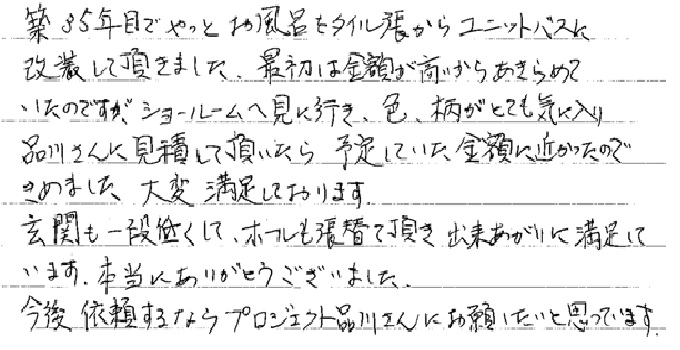 築35年目でやっとお風呂をタイル張からユニットバスに
改装して頂きました、最初は金額が高いからあきらめて
いたのですが、ショールームへ見に行き、色、柄がとても気に入り
品川さんに見積して頂いたら 予定していた金額に近かったので
きめました 大変満足しております.
玄関も一段低くして、ホールも張替て頂き 出来あがりに満足して
います. 本当にありがとうございました.
今後 依頼するならプロジェクト品川さんにお願いしたいと思っています.